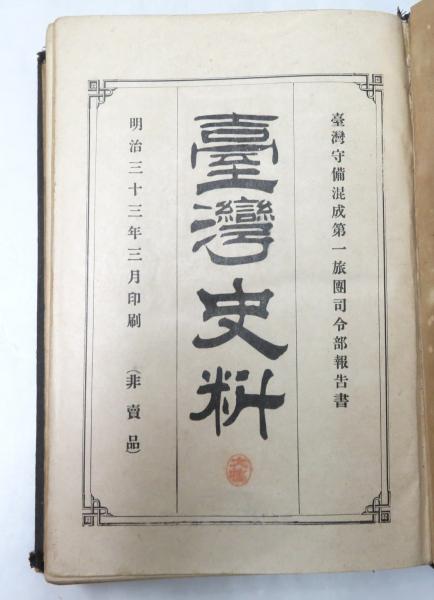 臺灣守備混成第一旅團司令部報告書
臺灣史料
明治三十三年三月印刷 （非賣品）